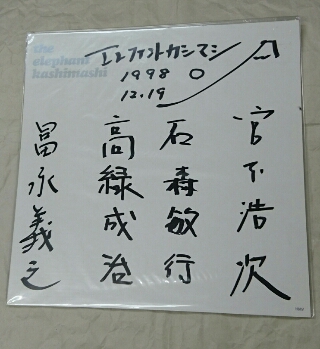 the
elephant
kashimashi
エレファントカシマシ
1998
12.19
宮本浩次
石森敏行
高緑成治
冨永義之